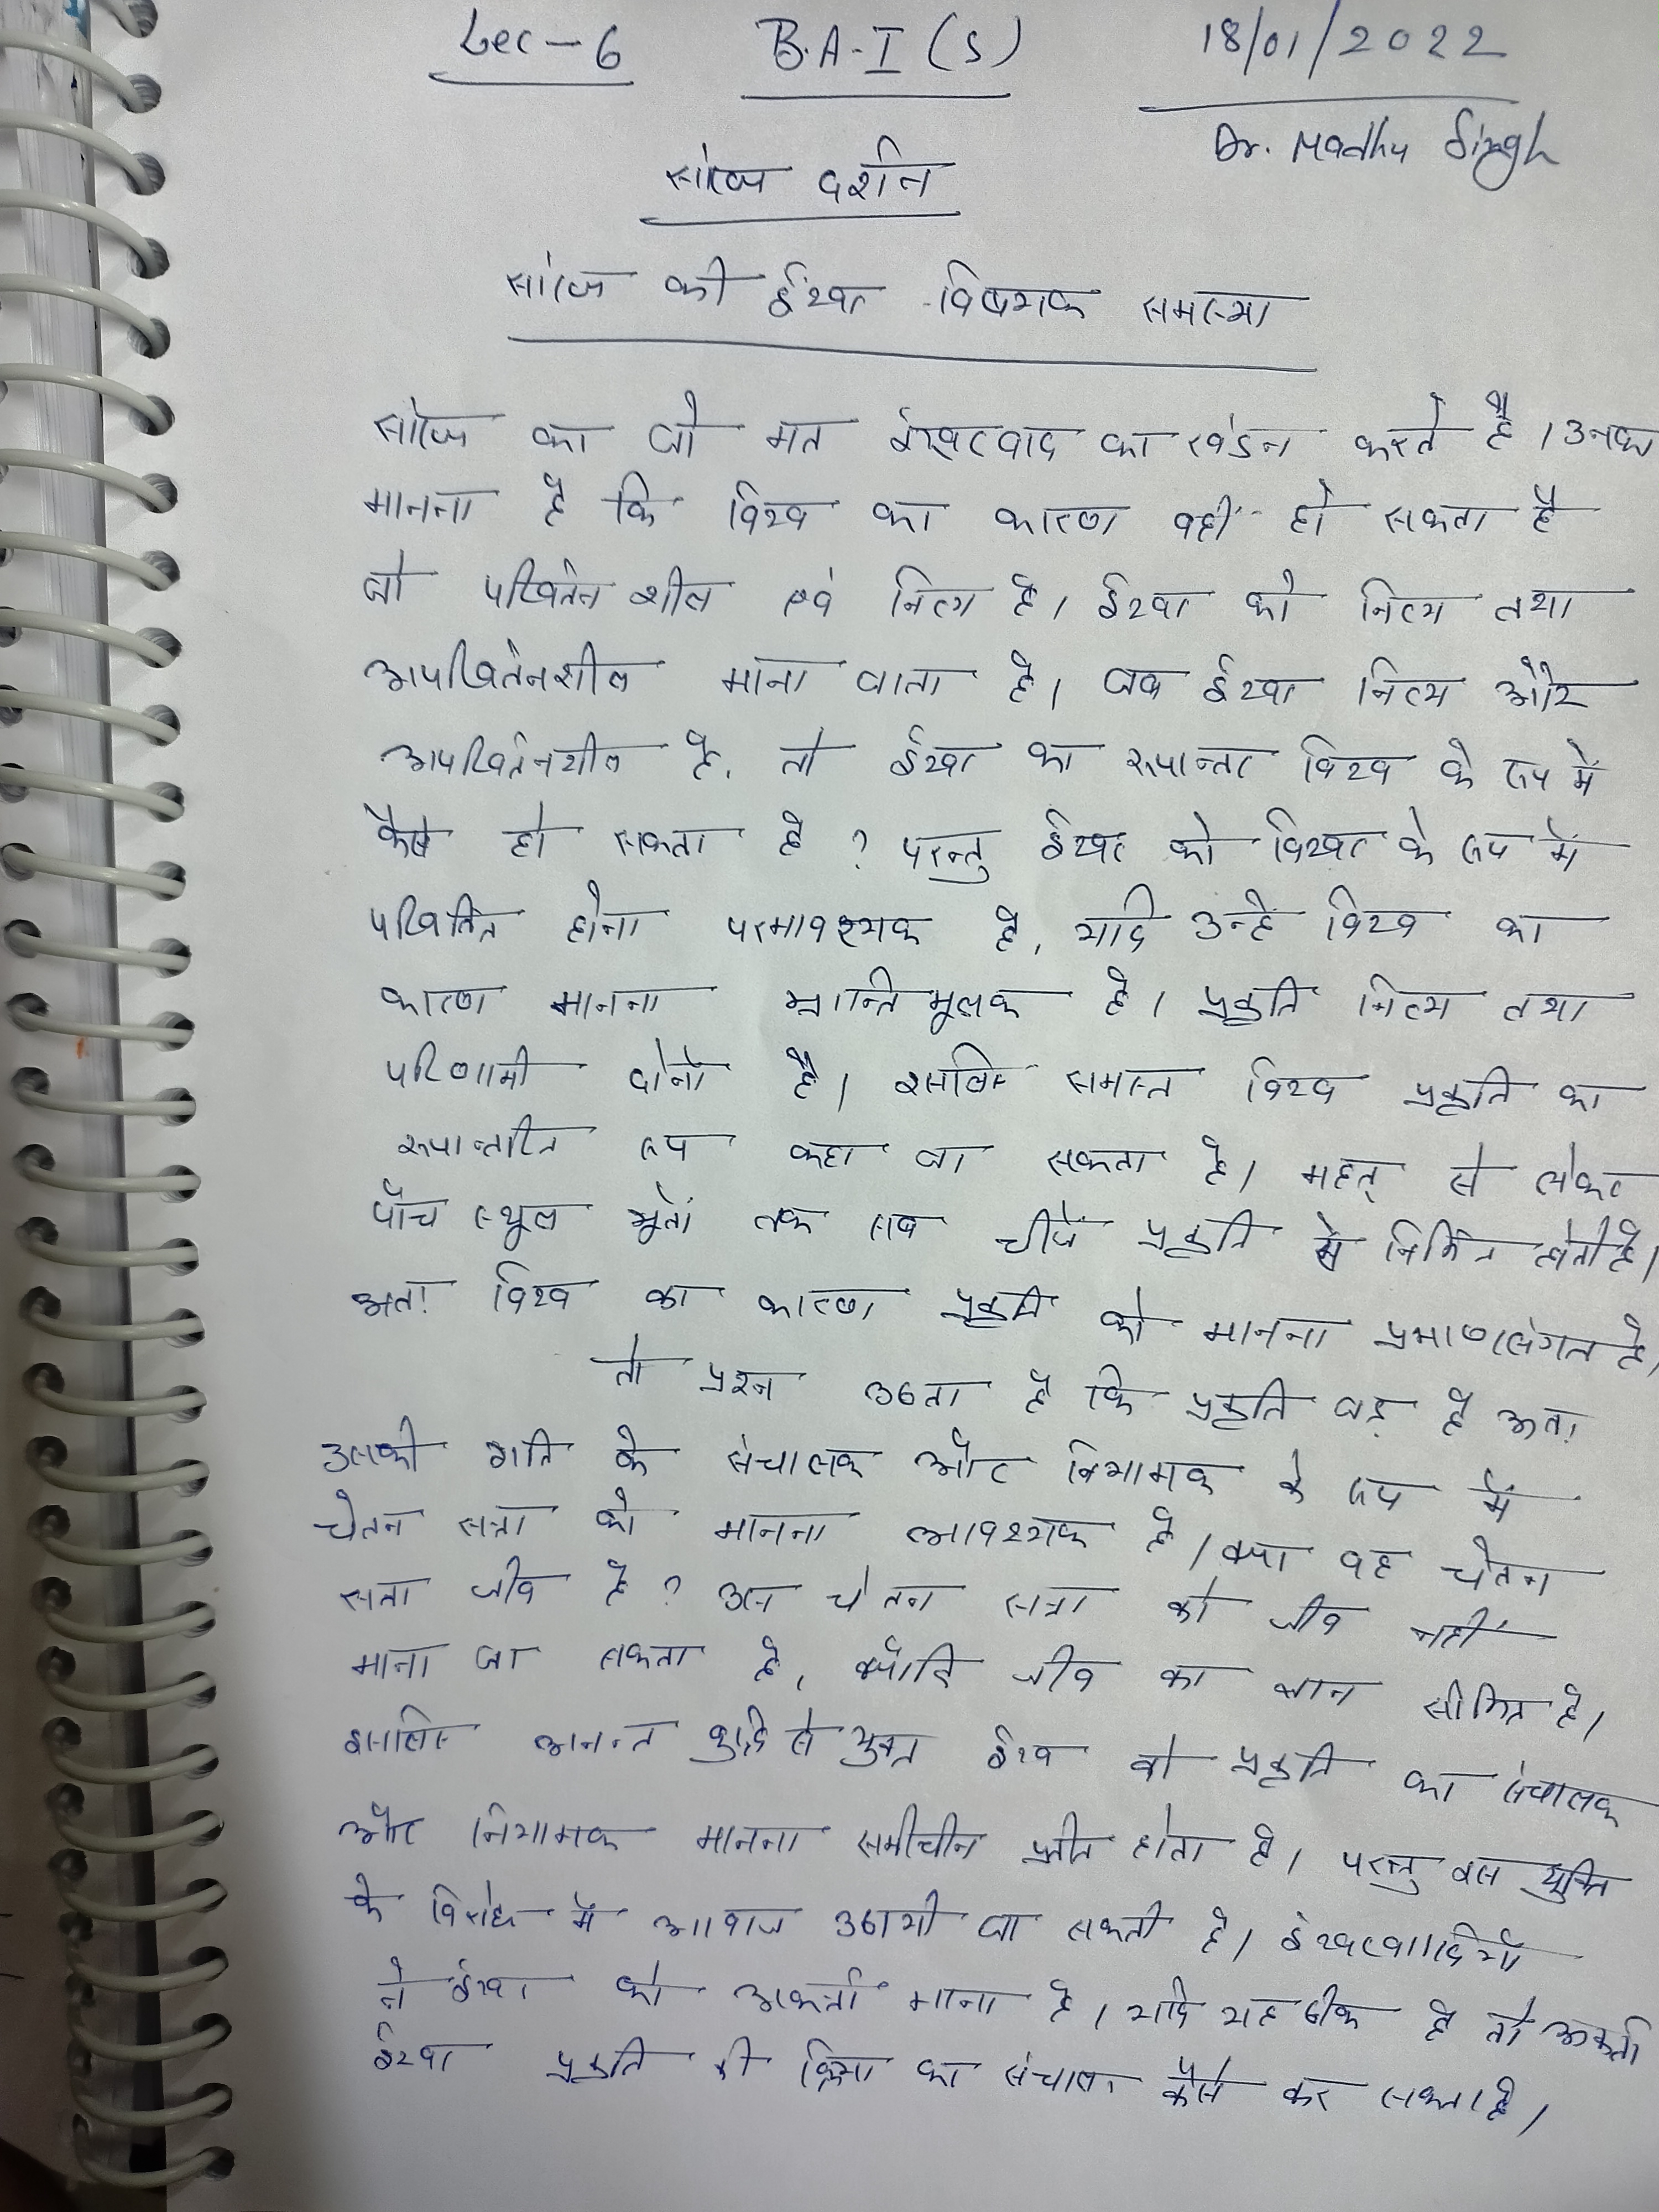 Lec-6 B.A-I (S) 18/01/2022
Dr. Madhu Singh
सांख्य दर्शन
सांख्य की ईश्वर-विषयक समस्या
सांख्य का जो मत ईश्वरवाद का खंडन करते हैं। उनका
मानना है कि विश्व का कारण वही हो सकता है
जो परिवर्तनशील एवं नित्य है। ईश्वर को नित्य तथा
अपरिवर्तनशील माना जाता है। जब ईश्वर नित्य और
अपरिवर्तनशील है, तो ईश्वर का रूपान्तर विश्व के रूप में
कैसे हो सकता है? परन्तु ईश्वर को विश्व के रूप में
परिवर्तित होना परमावश्यक है, यदि उन्हें विश्व का
कारण मानना भ्रान्तिमूलक है। प्रकृति नित्य तथा
परिणामी दोनों है। इसलिए समस्त विश्व प्रकृति का
रूपान्तरित रूप कहा जा सकता है। महत् से लेकर
पाँच स्थूल भूतों तक सब चीजें प्रकृति से निर्मित होती है।
अतः विश्व का कारण प्रकृति को मानना प्रमाणसंगत है।
तो प्रश्न उठता है कि प्रकृति जड़ है अतः
उसकी गति के संचालक और नियामक के रूप में
चेतन सत्ता को मानना आवश्यक है। क्या वह चेतन
सत्ता जीव है? उस चेतन सत्ता को जीव नहीं
माना जा सकता है, क्योंकि जीव का ज्ञान सीमित है।
इसलिए अनन्त बुद्धि से युक्त ईश्वर को प्रकृति का संचालक
और नियामक मानना समीचीन प्रतीत होता है। परन्तु इस युक्ति
के विरोध में आवाज उठायी जा सकती है। ईश्वरवादियों
ने ईश्वर को अकर्ता माना है। यदि यह ठीक है तो अकर्ता
ईश्वर प्रकृति की क्रिया का संचालन कैसे कर सकता है।